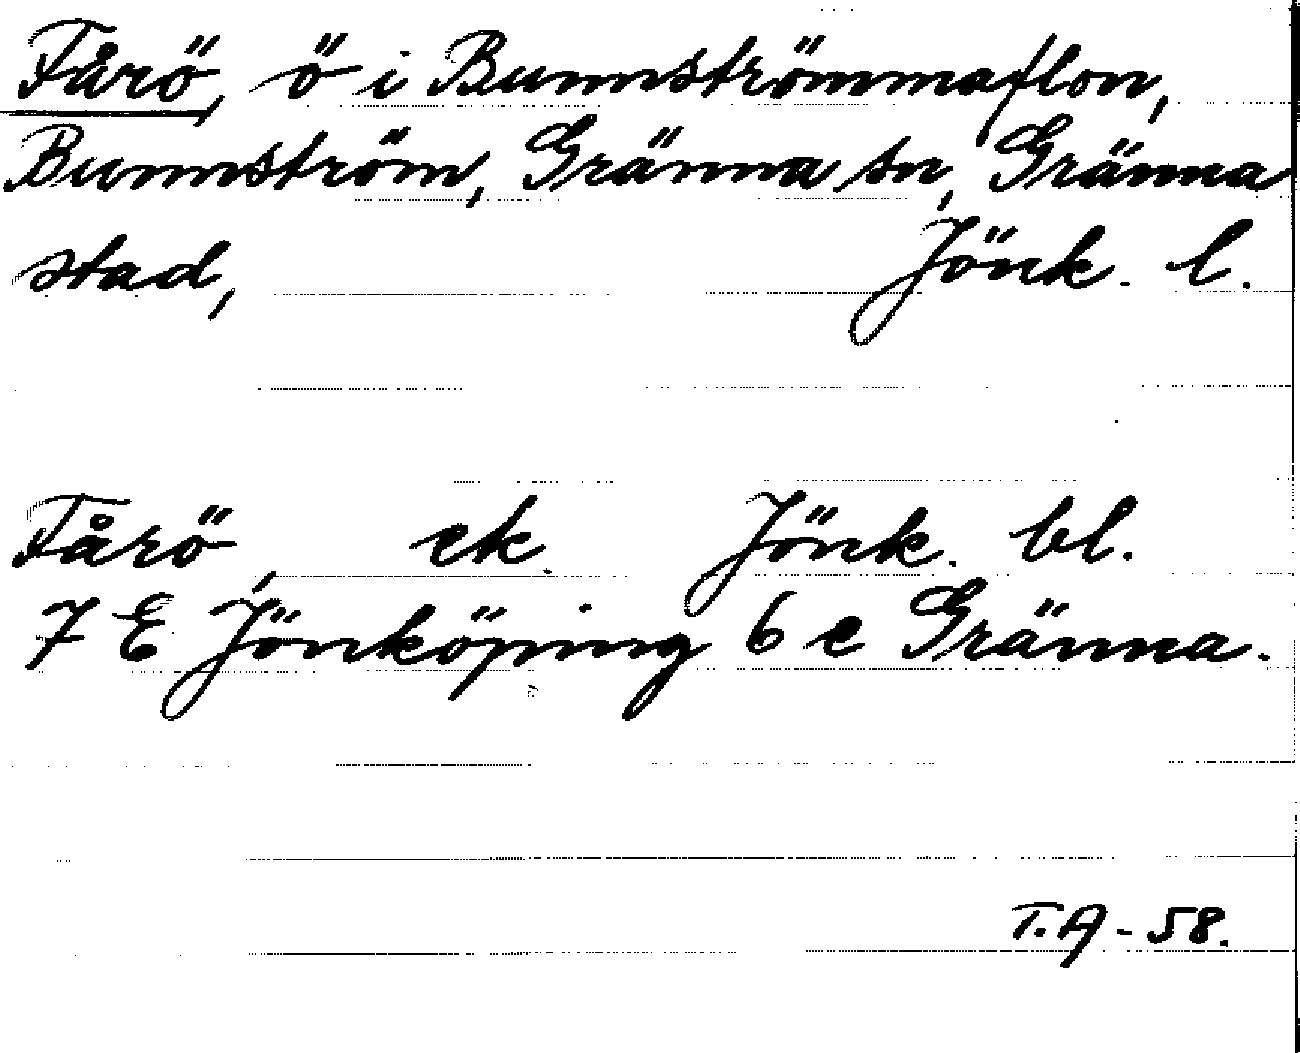 Fårö, ö i Bunnströmmaflon,
Bunnström, Gränna sn, Gränna
stad, Jönk. l.
Fårö, ek. Jönk. bl.
7 E Jönköping 6 e Gränna.
T.A - 58.